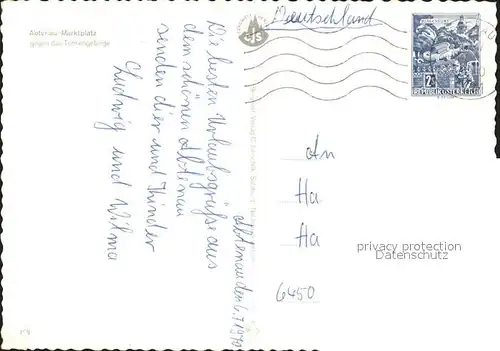 Abtenau-Marktplatz
gegen das Tennengebirge
Deutschland
REPUBLIK ÖSTERREICH
Abtenau den 6.7.1970
Die besten Urlaubsgrüße aus
dem schönen Abtenau
senden dier und Kinder
Ludwig und Wilma
An
Ha
Ha
6450
privacy protection
Datenschutz